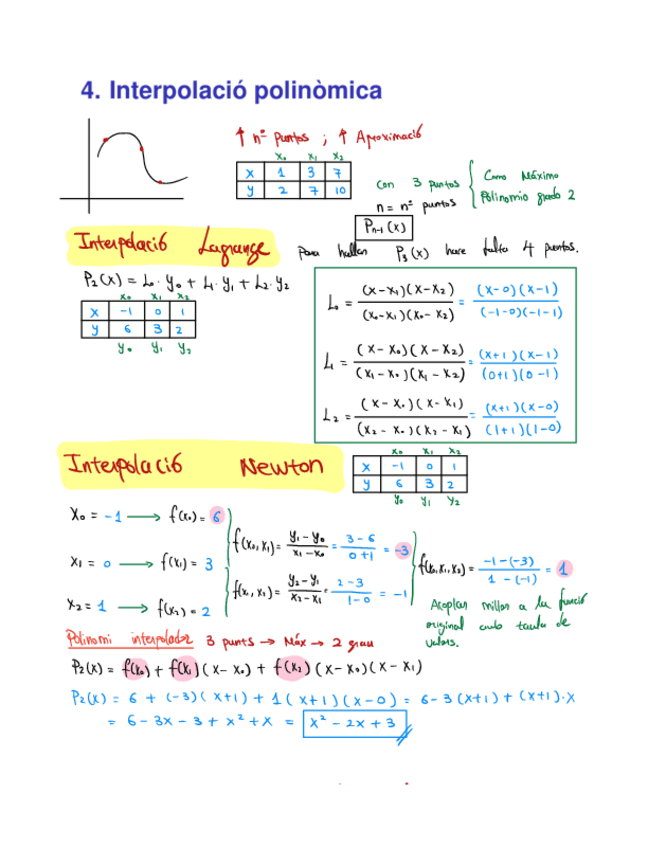 4. Interpolació polinòmica
↑ nº puntos ; ↑ Aproximació
x₀ x₁ x₂
x 1 3 7
y 2 7 10
Con 3 puntos { Como Máximo Polinomio grado 2
n = nº puntos
Pn-1 (x)
Interpolació Lagrange
Para hallar P₃(x) hace falta 4 puntos.
P₂(x) = L₀ · y₀ + L₁ · y₁ + L₂ · y₂
x₀ x₁ x₂
x -1 0 1
y 6 3 2
y₀ y₁ y₂
L₀ = (x-x₁)(x-x₂) / (x₀-x₁)(x₀-x₂) = (x-0)(x-1) / (-1-0)(-1-1)
L₁ = (x-x₀)(x-x₂) / (x₁-x₀)(x₁-x₂) = (x+1)(x-1) / (0+1)(0-1)
L₂ = (x-x₀)(x-x₁) / (x₂-x₀)(x₂-x₁) = (x+1)(x-0) / (1+1)(1-0)
Interpolació Newton
x₀ x₁ x₂
x -1 0 1
y 6 3 2
y₀ y₁ y₂
x₀ = -1 → f(x₀) = 6
f(x₀,x₁) = y₁-y₀ / x₁-x₀ = 3-6 / 0+1 = -3
x₁ = 0 → f(x₁) = 3
f(x₀,x₁,x₂) = -1-(-3) / 1-(-1) = 1
f(x₁,x₂) = y₂-y₁ / x₂-x₁ = 2-3 / 1-0 = -1
x₂ = 1 → f(x₂) = 2
Acoplan millor a la funció
original amb taula de
valors.
Polinomi interpolador 3 punts → Máx → 2 grau
P₂(x) = f(x₀) + f(x₁)(x-x₀) + f(x₂)(x-x₀)(x-x₁)
P₂(x) = 6 + (-3)(x+1) + 1(x+1)(x-0) = 6-3(x+1) + (x+1)·x
= 6-3x-3+x²+x = x²-2x+3